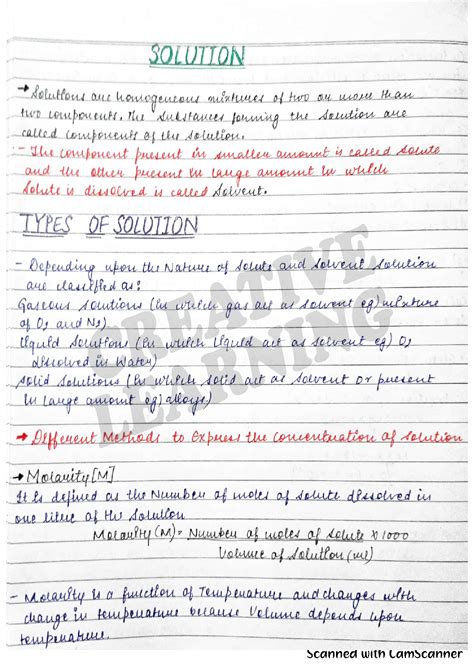 SOLUTION
→ Solutions are homogeneous mixtures of two or more than
two components. the substances forming the solution are
called components of the solution.
- The component present in smaller amount is called Solute
and the other present in large amount in which
Solute is dissolved is called Solvent.
TYPES OF SOLUTION
- Depending upon the Nature of Solute and Solvent Solution
are classified as:
Gaseous Solutions (In which gas act as Solvent eg) mixture
of O₂ and N₂)
liquid Solutions (In which liquid act as Solvent eg) O₂
dissolved in Water)
Solid Solutions (In which Solid act as Solvent or present
in large amount eg) alloys)
→ Different Methods to Express the concentration of Solution
→ Molarity [M]
It is defined as the Number of moles of Solute dissolved in
one litre of the Solution
Molarity (M) = Number of moles of Solute X 1000
Volume of Solution (ml)
- Molarity is a function of Temperature and changes with
change in temperature because Volume depends upon
temperature.
CREATIVE
LEARNING
Scanned with CamScanner